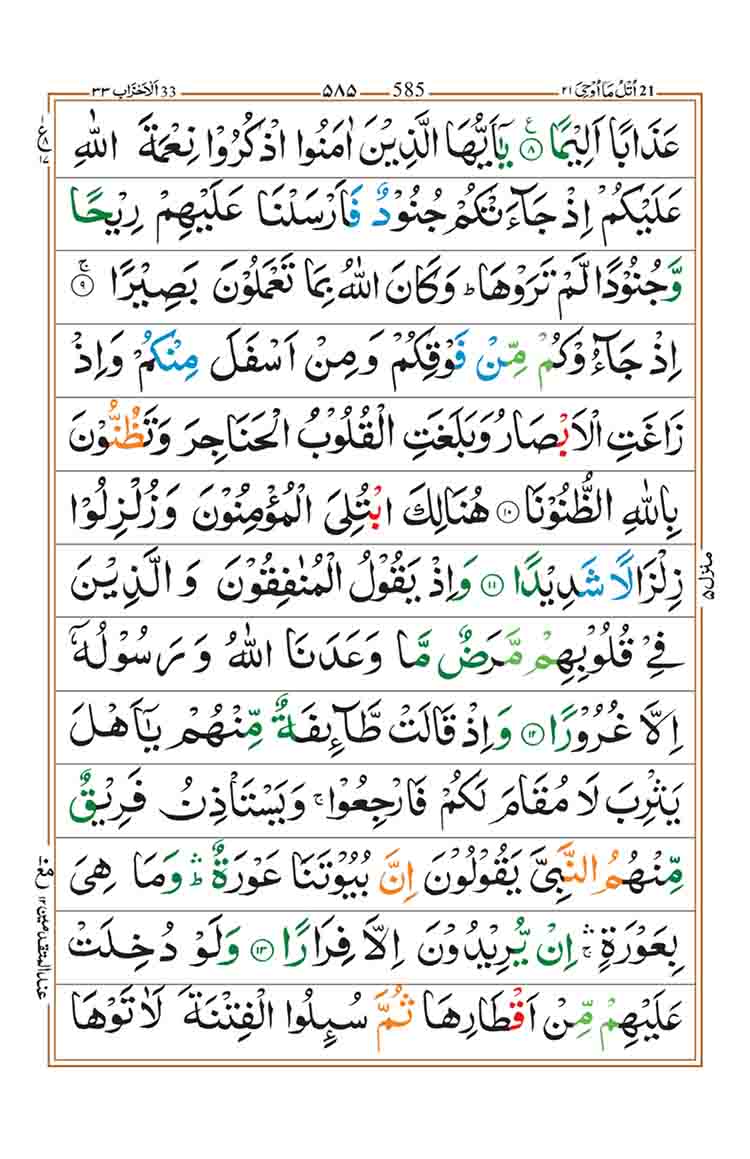 21 اُتْلُ مَا اُوْحِیَ ۲۱ 585 ۵۸۵ 33 اَلْاَحْزَاب ۳۳
عَذَابًا اَلِیْمًا ۸ یٰۤاَیُّهَا الَّذِیْنَ اٰمَنُوا اذْكُرُوْا نِعْمَةَ اللّٰهِ
عَلَیْكُمْ اِذْ جَآءَتْكُمْ جُنُوْدٌ فَاَرْسَلْنَا عَلَیْهِمْ رِیْحًا
وَّجُنُوْدًا لَّمْ تَرَوْهَا ؕ وَكَانَ اللّٰهُ بِمَا تَعْمَلُوْنَ بَصِیْرًا ۚ ۹
اِذْ جَآءُوْكُمْ مِّنْ فَوْقِكُمْ وَمِنْ اَسْفَلَ مِنْكُمْ وَاِذْ
زَاغَتِ الْاَبْصَارُ وَبَلَغَتِ الْقُلُوْبُ الْحَنَاجِرَ وَتَظُنُّوْنَ
بِاللّٰهِ الظُّنُوْنَا ۱۰ هُنَالِكَ ابْتُلِیَ الْمُؤْمِنُوْنَ وَزُلْزِلُوْا
زِلْزَالًا شَدِیْدًا ۱۱ وَاِذْ یَقُوْلُ الْمُنٰفِقُوْنَ وَالَّذِیْنَ
فِیْ قُلُوْبِهِمْ مَّرَضٌ مَّا وَعَدَنَا اللّٰهُ وَرَسُوْلُهٗۤ
اِلَّا غُرُوْرًا ۱۲ وَاِذْ قَالَتْ طَّآئِفَةٌ مِّنْهُمْ یٰۤاَهْلَ
یَثْرِبَ لَا مُقَامَ لَكُمْ فَارْجِعُوْا ۚ وَیَسْتَاْذِنُ فَرِیْقٌ
مِّنْهُمُ النَّبِیَّ یَقُوْلُوْنَ اِنَّ بُیُوْتَنَا عَوْرَةٌ ۛؕ وَمَا هِیَ
بِعَوْرَةٍ ۛۚ اِنْ یُّرِیْدُوْنَ اِلَّا فِرَارًا ۱۳ وَلَوْ دُخِلَتْ
عَلَیْهِمْ مِّنْ اَقْطَارِهَا ثُمَّ سُىِٕلُوا الْفِتْنَةَ لَاٰتَوْهَا
منزل ۵
عند المتقدمین ۱۲